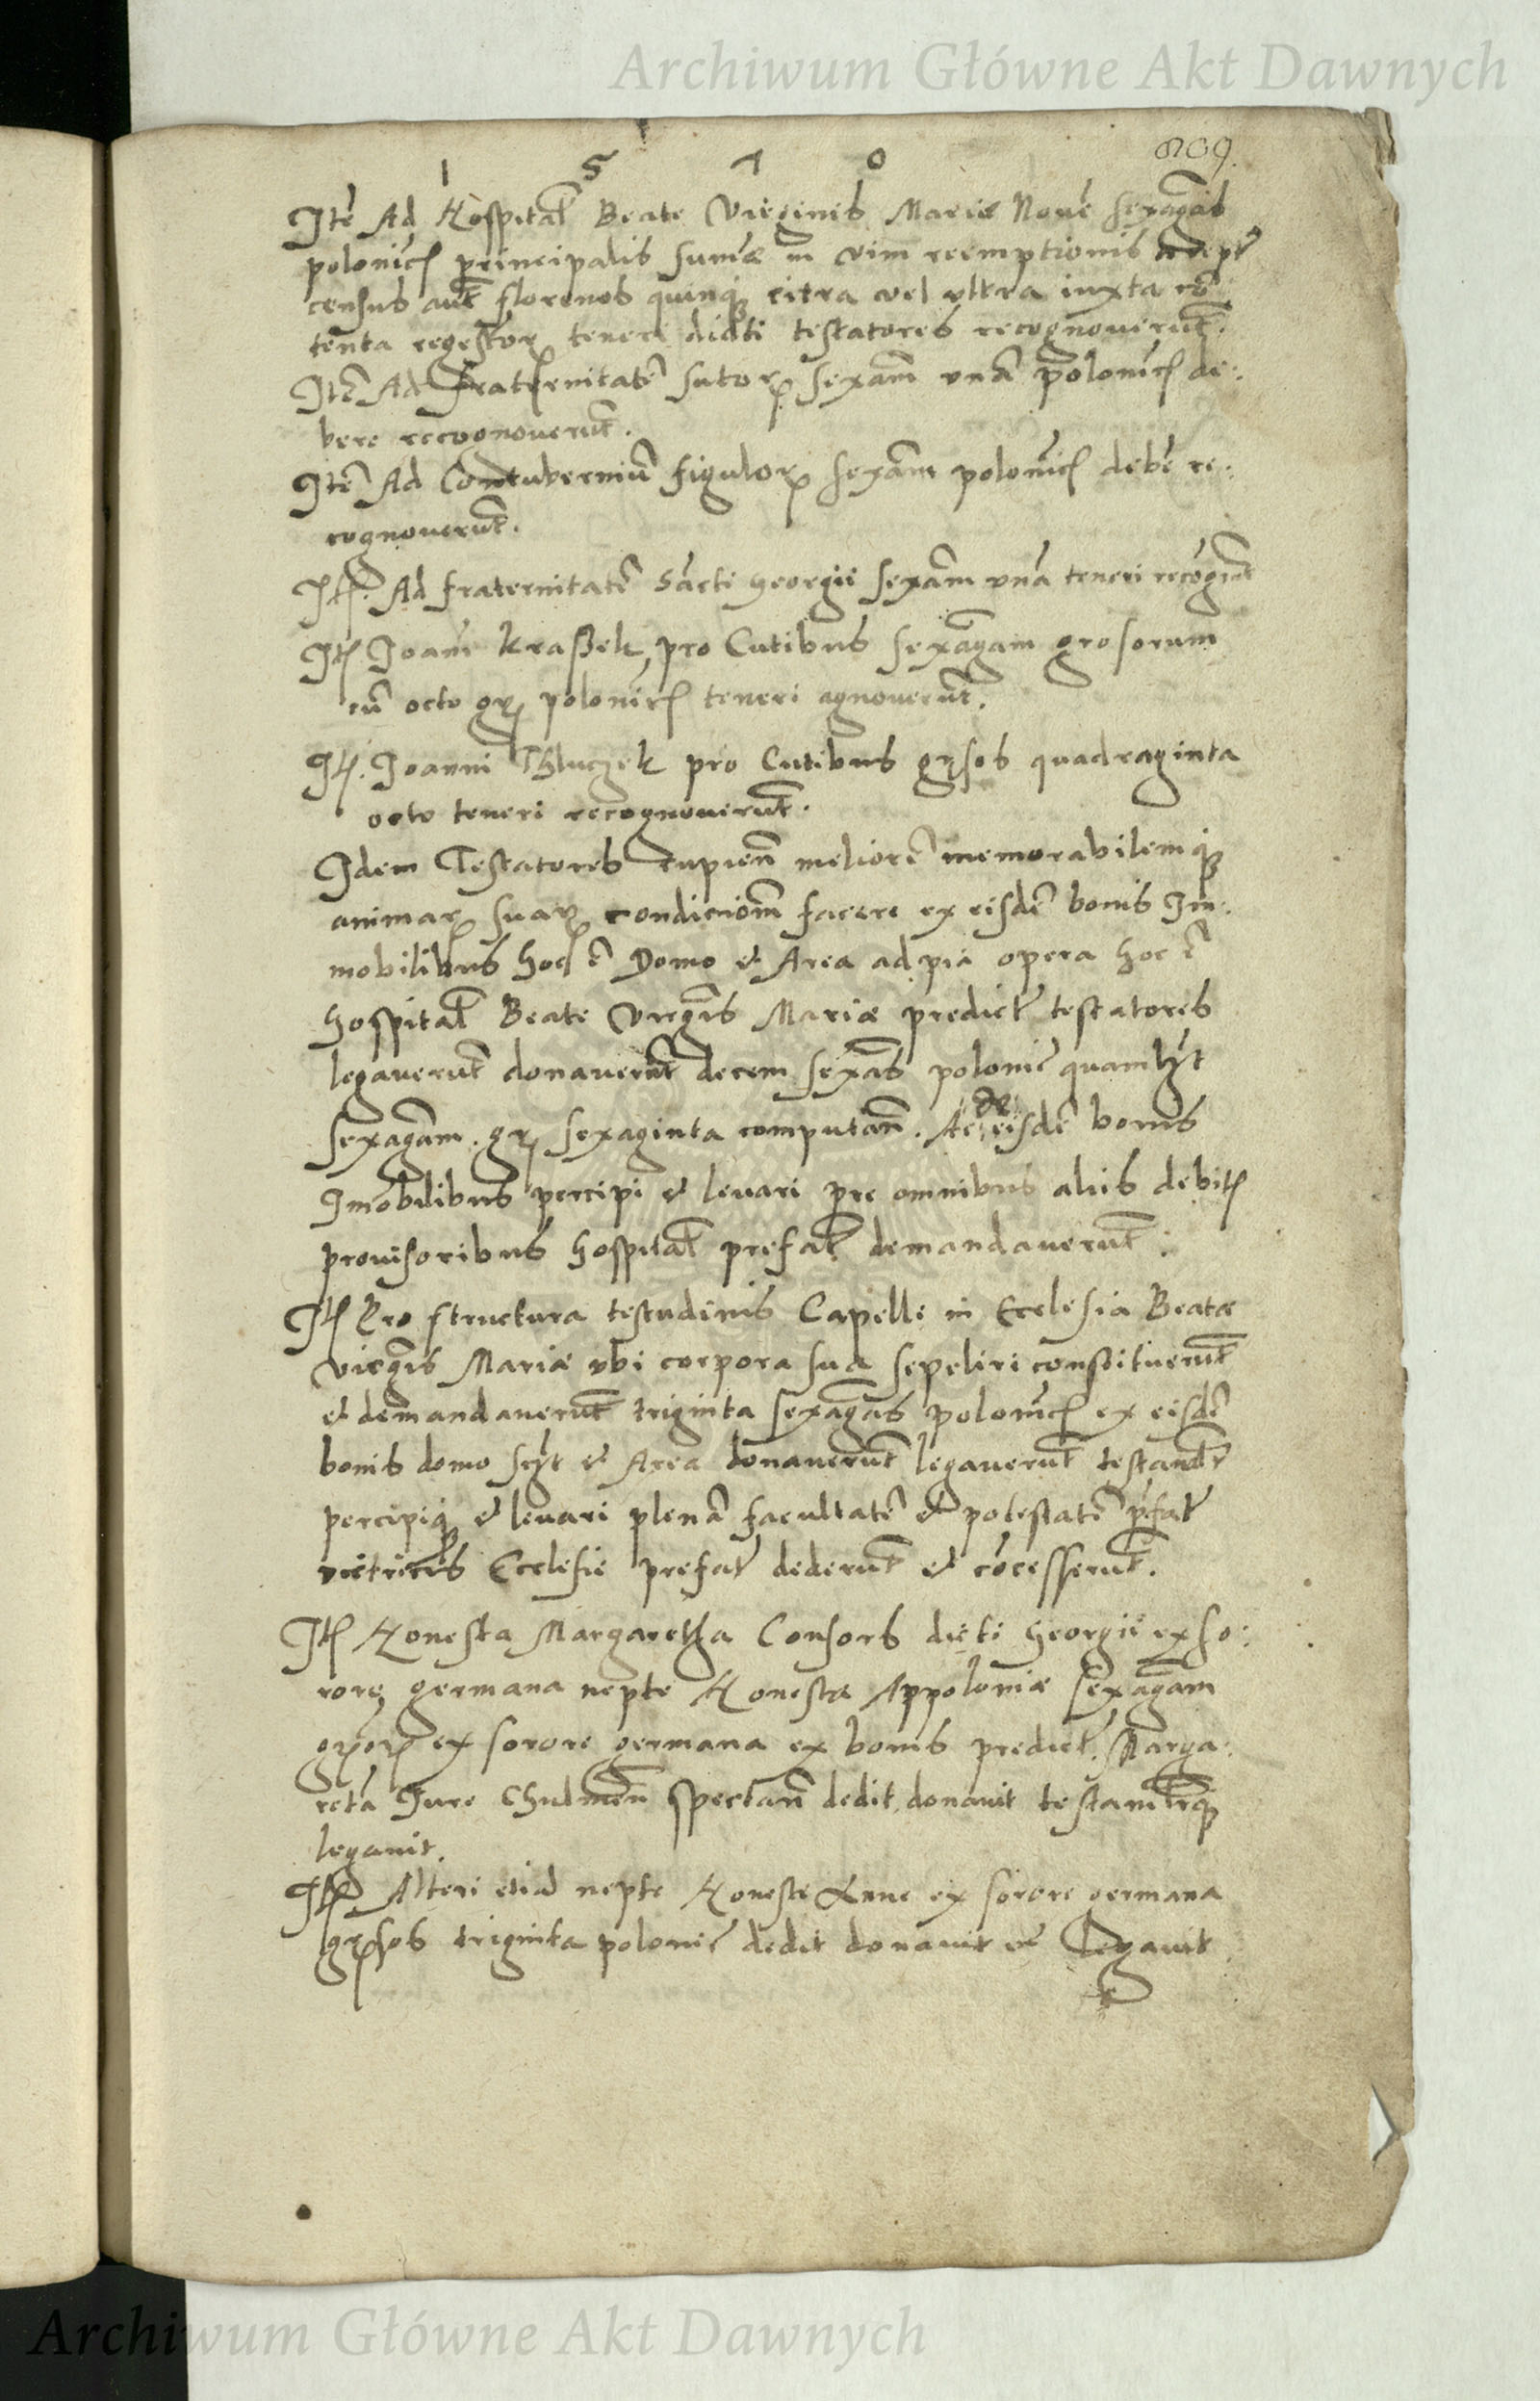 Archiwum Główne Akt Dawnych
809.
1 5 7 0
Itē Ad Hospitał Beate Virginis Mariæ Nove sexagēas
polonicł principalis sumæ in vim reemptionis
census aut̄ florenos quinqꝫ citra vel vltra iuxta cō
tenta regestorꝝ teneri dicti testatores recognoverūt.
Itē Ad Fraternitatē sutorꝝ sexām vnā polonicł de:
bere recognoverūt.
Itē Ad Contuberniū figulorꝝ sexām polonicł debē re:
cognoverūt.
Itł. Ad fraternitatē Sācti Georgii sexām vnā teneri recogñt
Itł Joañi Kraßek pro Cutibus sexāgam grosorum
cū octo gꝝ polonicł teneri agnoverūt.
Itł. Joanni Thluczek pro Cutibus gꝝsos quadraginta
octo teneri recognoverūt.
Idem Testatores cupień meliorē memorabilemqꝫ
animarꝝ suarꝝ condicioēm facere ex eisdē bonis Im:
mobilibus hoc ē Domo & Area ad pia opera hoc ē
hospitał Beate Virgīs Mariæ predict̄ testatores
legaverūt donaverūt decem sexās poloniē quamlꝫt
sexagām. gꝝ sexaginta computań. Ac de eisdē bonis
Imobilibus percipi & levari pre omnibus aliis debitł
provisoribus hospitał prefat̄ demandaverūt.
Itł Pro structura testudinis Capelle in Ecclesia Beatæ
Virgīs Mariæ vbi corpora sua sepeliri constituerūt
& demandaverūt triginta sexāgas polonicł ex eisdē
bonis domo scꝫt & Area donaverūt legaverūt testandt̄
percipiqꝫ & levari plenā facultatē & potestatē p̄fat̄
victricis Ecclesie prefat̄ dederūt & cōcesserūt.
Itł Honesta Margaretha Consors dicti Georgii ex so:
rore germana nepte Honestæ Appoloniæ sexāgam
gꝝorꝝ ex sorore germana ex bonis predict̄. Marga:
reta Iure Chulmeń spectań dedit, donavit testamt̄rqꝫ
legavit.
Itł Alteri etiā nepte Honeste Anne ex sorore germana
gꝝsos triginta poloniē dedit donavit & Legavit
Archiwum Główne Akt Dawnych